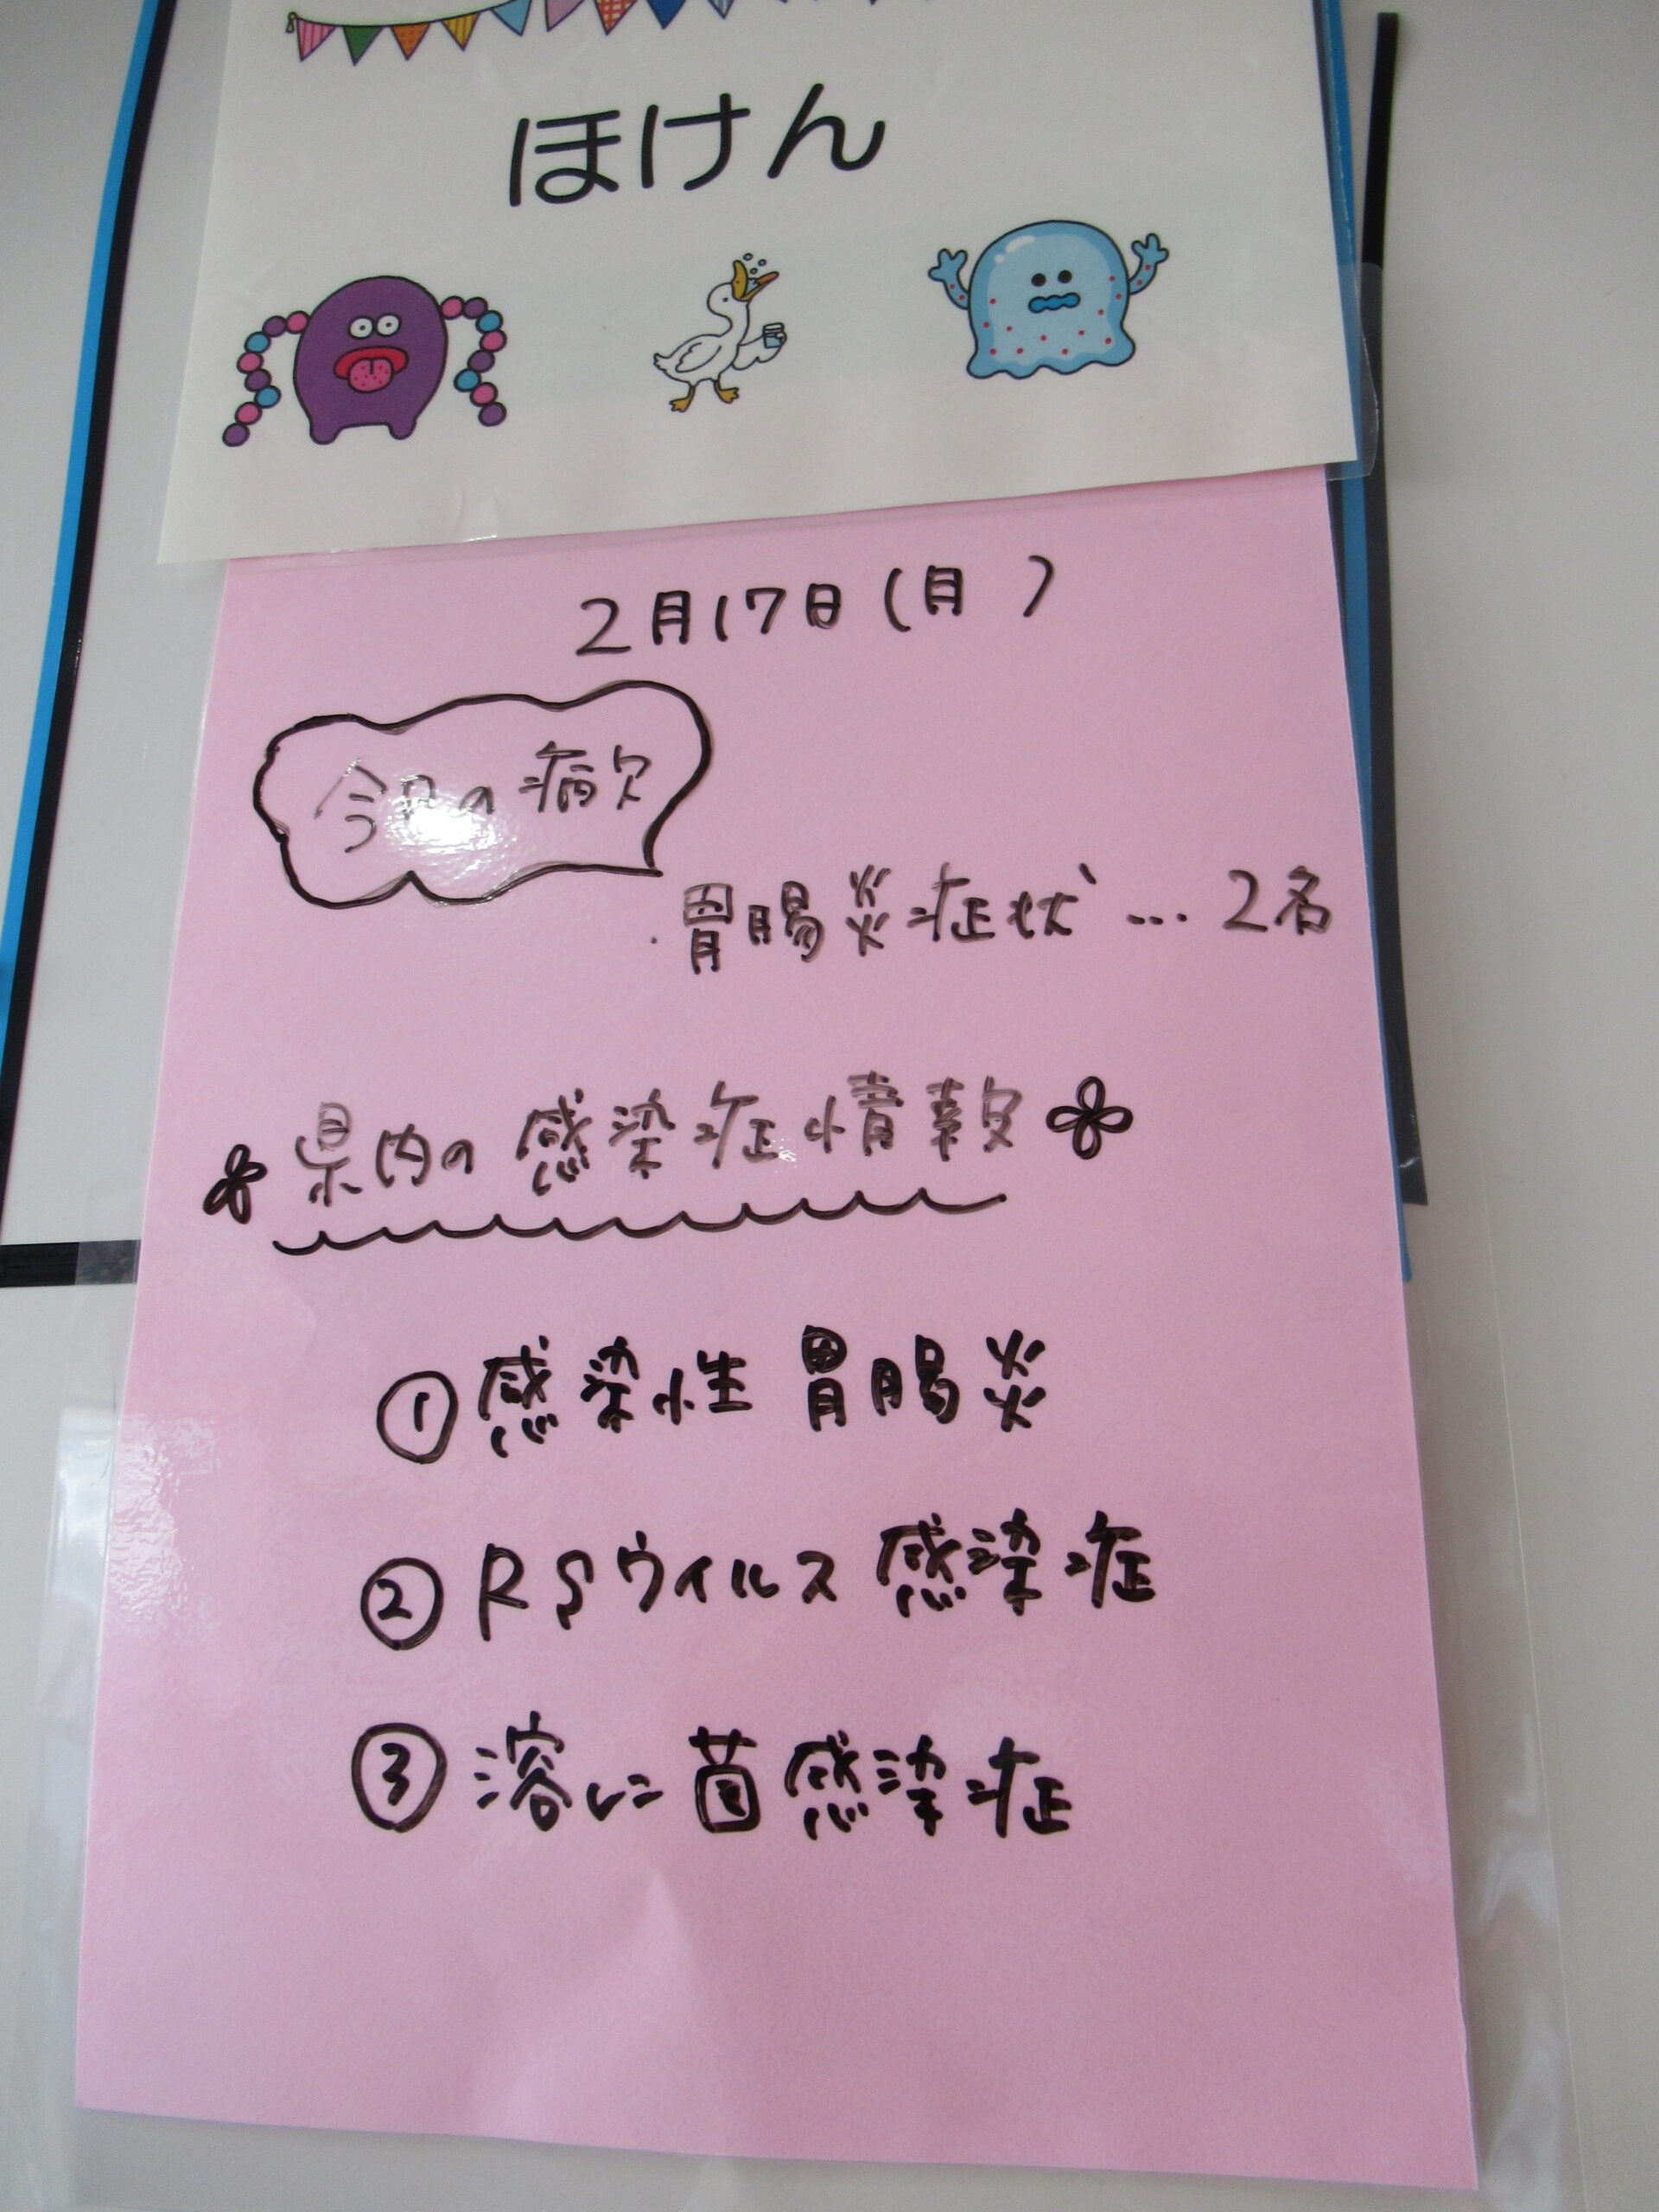 ほけん
2月17日(月 )
今日の病欠
・胃腸炎症状…2名
県内の感染症情報
①感染性胃腸炎
②RSウイルス感染症
③溶レン菌感染症